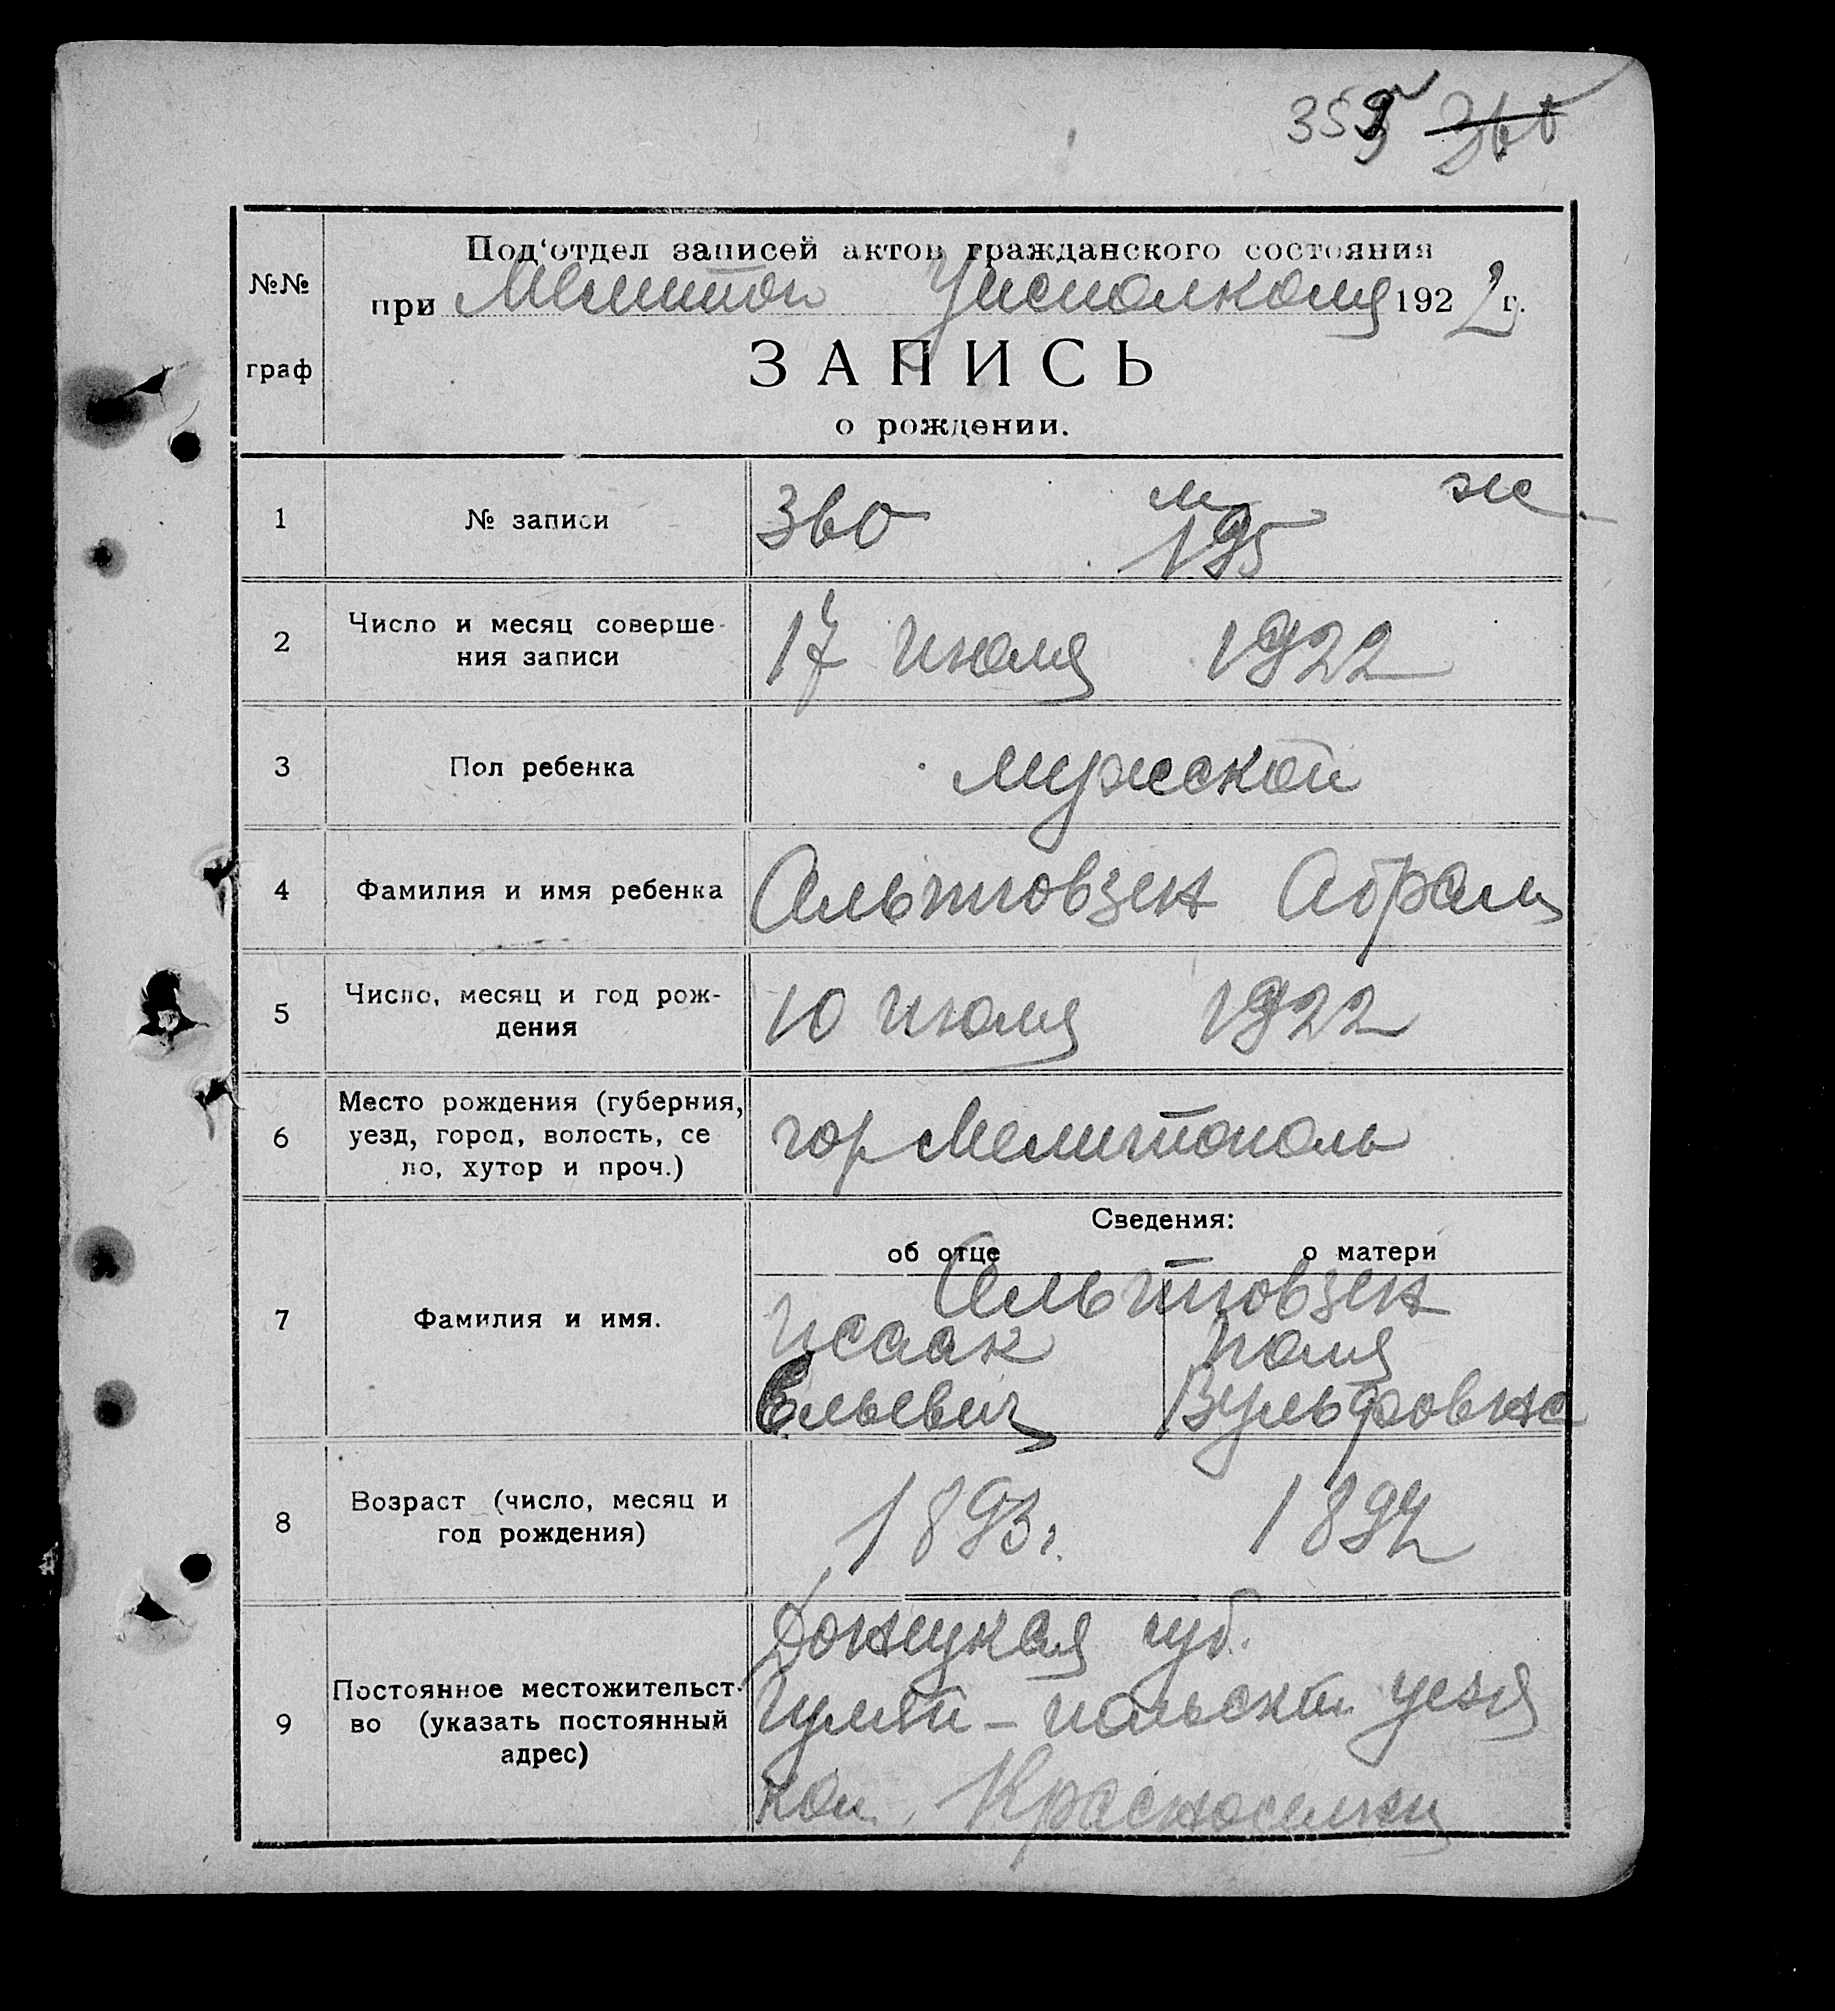 359 360
Под‘отдел записей актов гражданского состояния
№№
при Мелитоп Уисполкома 1922 г.
граф
ЗАПИСЬ
о рождении.
1 № записи 360 м 195 ж
2 Число и месяц соверше-
ния записи
17 июля 1922
3 Пол ребенка мужской
4 Фамилия и имя ребенка Альтговзен Абрам
5 Число, месяц и год рож-
дения
10 июля 1922
6 Место рождения (губерния,
уезд, город, волость, се
ло, хутор и проч.)
гор Мелитополь
Сведения:
об отце о матери
7 Фамилия и имя.
Альтговзен
Исаак Поля
Ельевич Вульфовна
8 Возраст (число, месяц и
год рождения)
1893г. 1894
9 Постоянное местожительст-
во (указать постоянный
адрес)
Донецкая губ.
Гуляй-польски уезд
кол. Красноселки